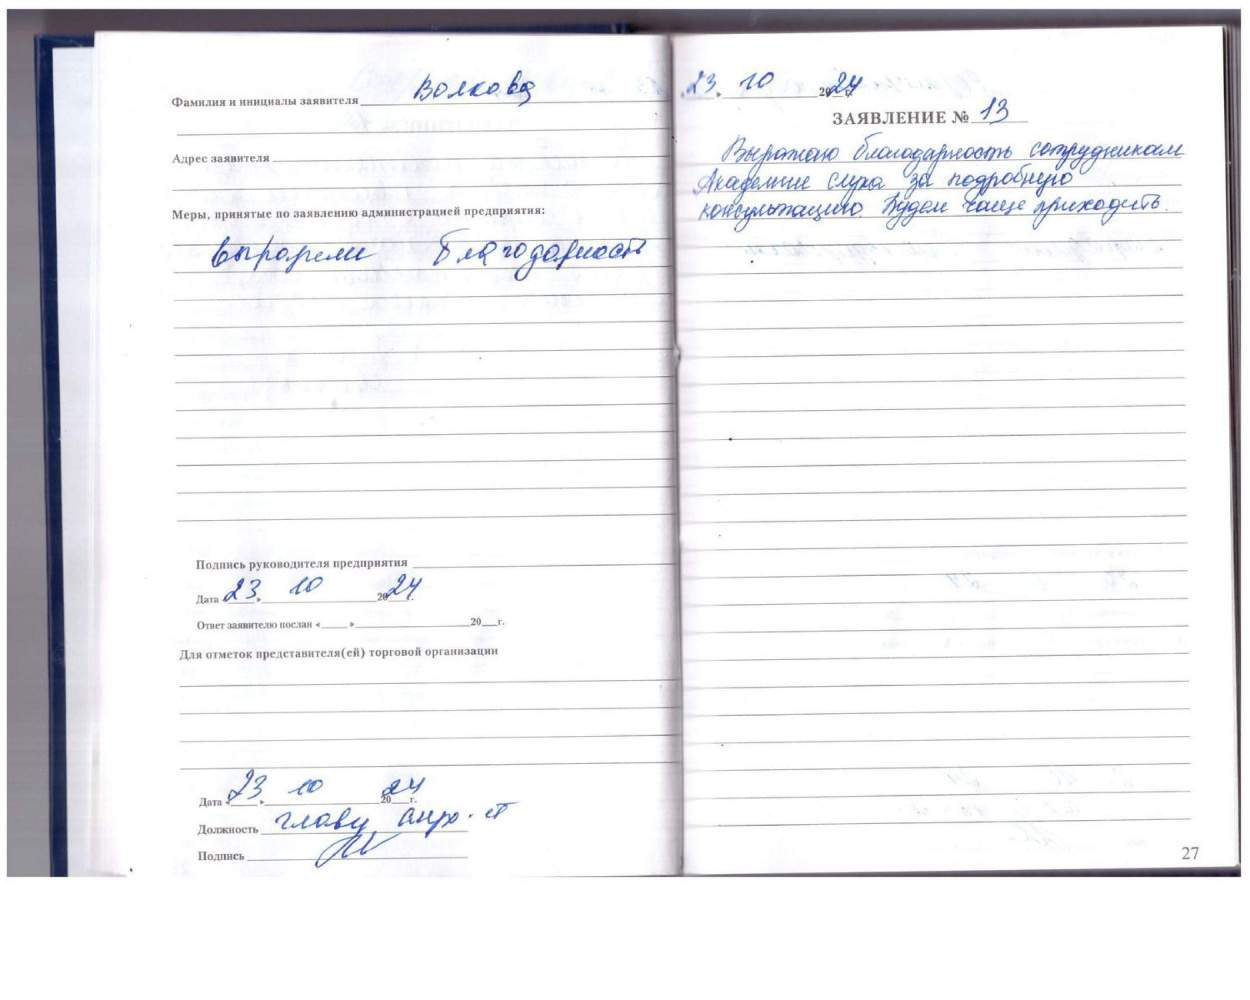 Фамилия и инициалы заявителя Волкова
Адрес заявителя
Меры, принятые по заявлению администрацией предприятия:
выразили благодарность
Подпись руководителя предприятия
Дата «23» 10 2024 г.
Ответ заявителю послан «___» 20__г.
Для отметок представителя(ей) торговой организации
Дата «23» 10 2024 г.
Должность
Подпись
23» 10 2024 г.
ЗАЯВЛЕНИЕ № 13
Выражаю благодарность сотрудникам
Академии слуха за подробную
консультацию. Будем чаще приходить.
27